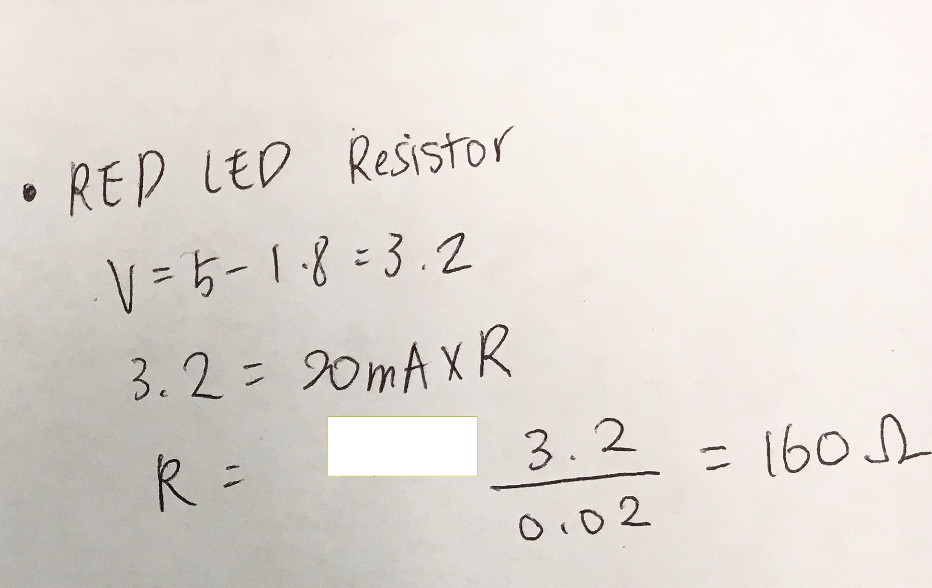 • RED LED Resistor
V = 5 - 1.8 = 3.2
3.2 = 20mA X R
R = 3.2 / 0.02 = 160 Ω